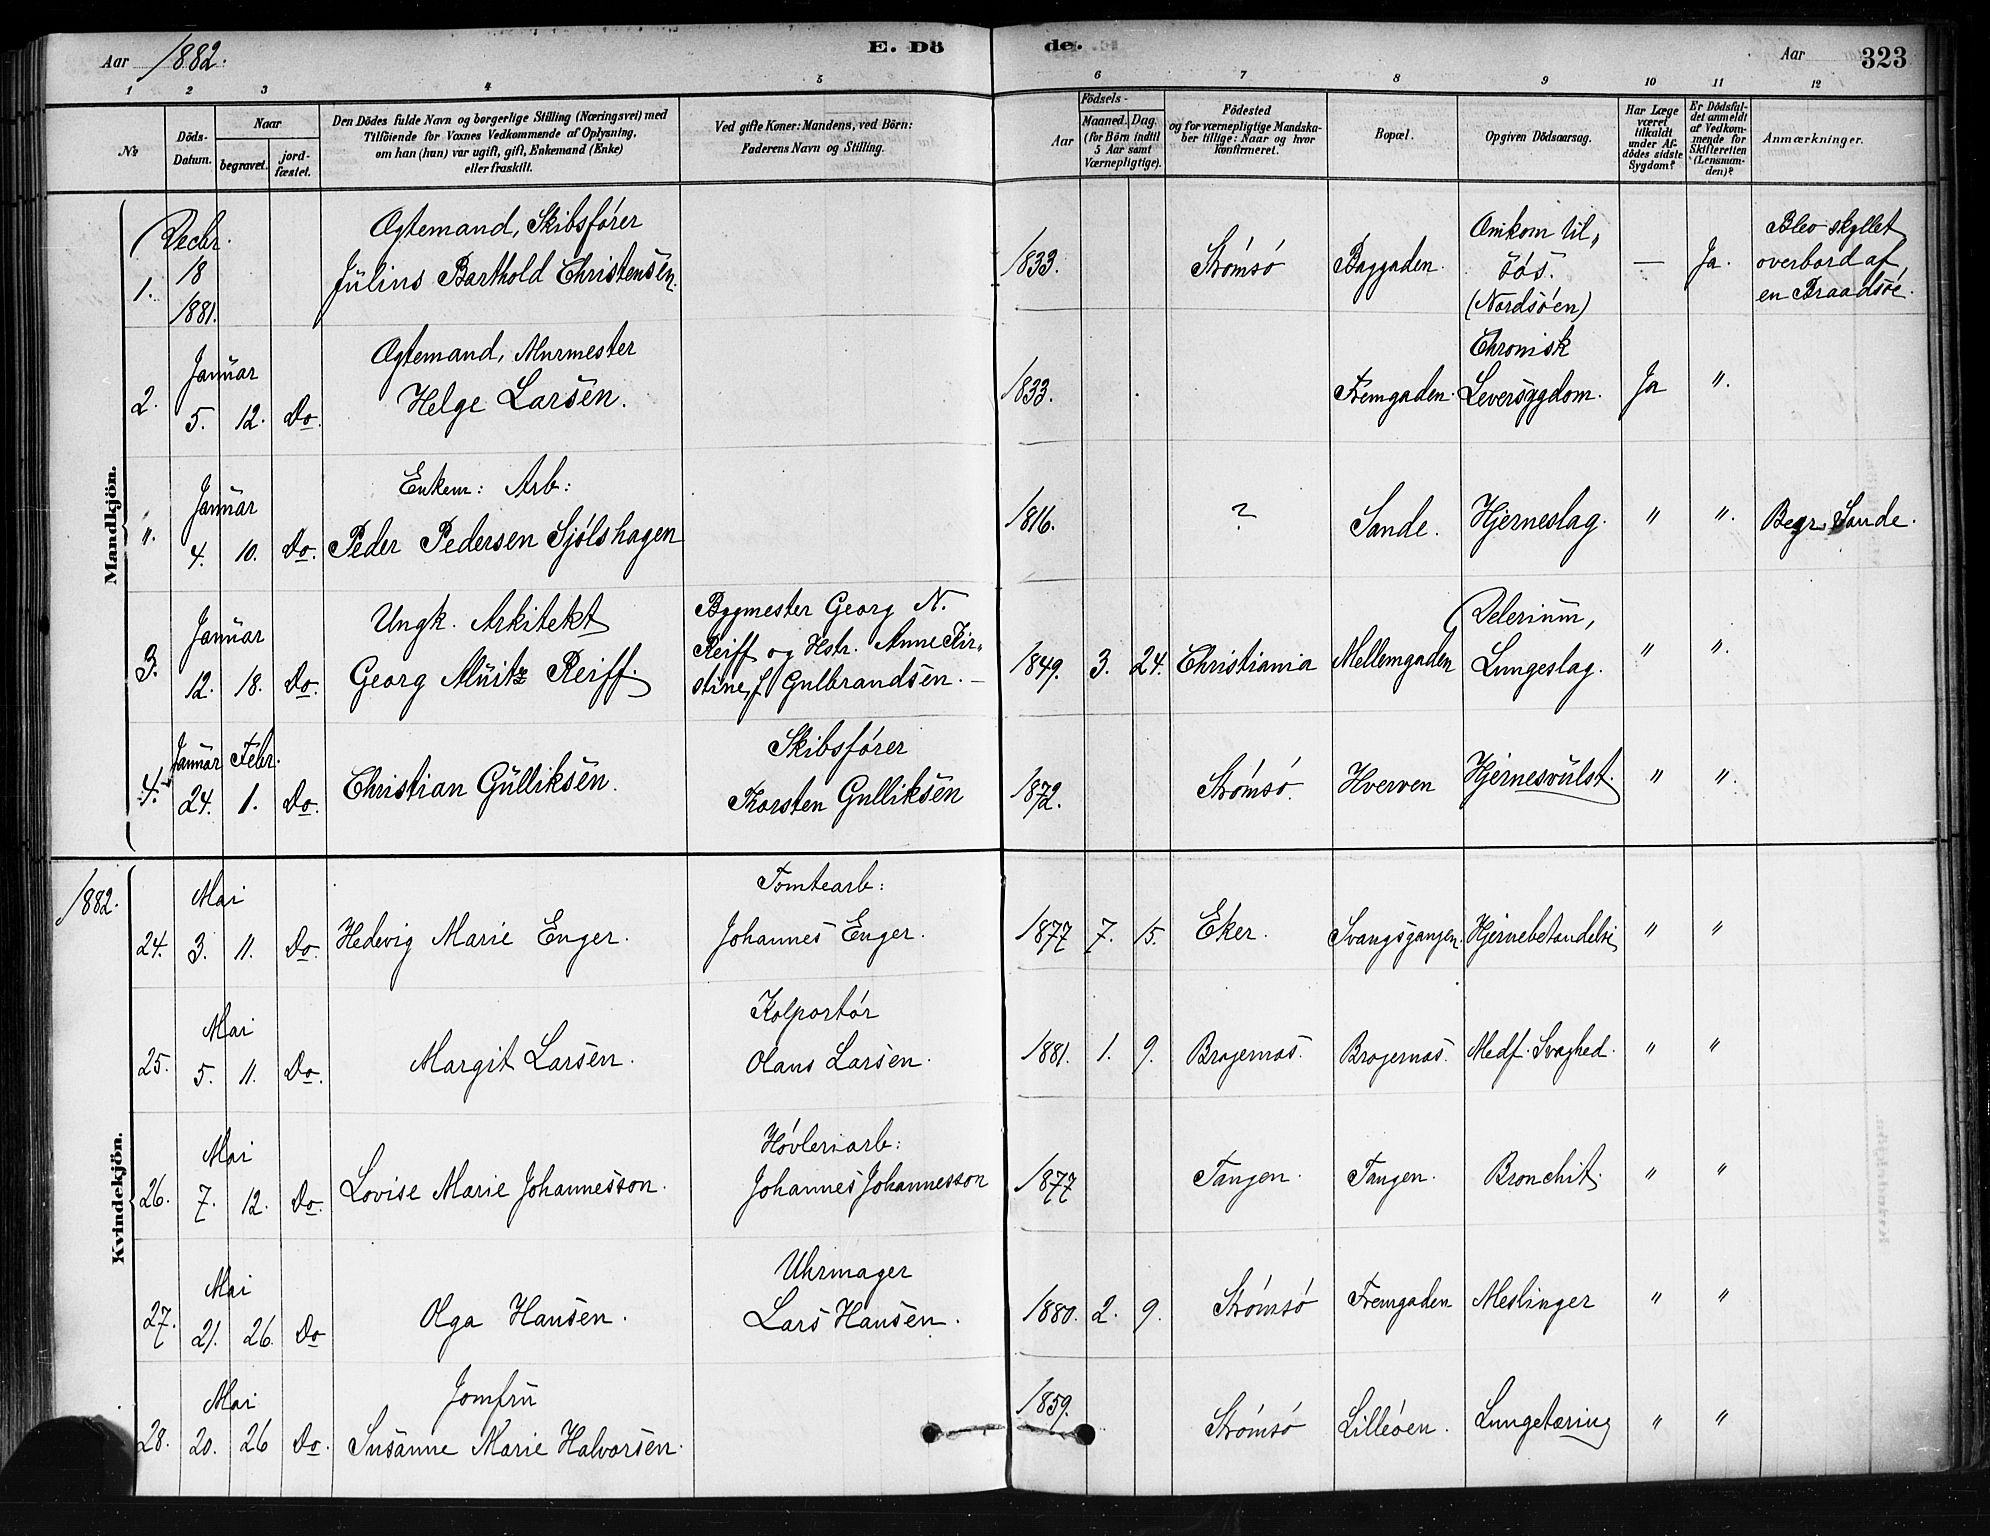 Aar 1882.
E. Dö
de.
Aar
323
1 2 3 4 5 6 7 8 9 10 11 12
No
Döds-
Datum.
Naar
begravet.
jord-
fæstet.
Den Dödes fulde Navn og borgerlige Stilling (Næringsvei) med
Tilföiende for Voxnes Vedkommende af Oplysning,
om han (hun) var ugift, gift, Enkemand (Enke)
eller fraskilt.
Ved gifte Koner: Mandens, ved Börn:
Faderens Navn og Stilling.
Födsels-
Aar
Maaned. Dag.
(for Börn indtil
5 Aar samt
Værnepligtige).
Födested
og for værnepligtige Mandska-
ber tillige: Naar og hvor
konfirmeret.
Bopæl.
Opgiven Dödsaarsag.
Har Læge
været
tilkaldt
under Af-
dödes sidste
Sygdom?
Er Dödsfal-
det anmeldt
af Vedkom-
mende for
Skifteretten
(Lensman-
den)?
Anmærkninger.
Mandkjön.
Decbr.
1. 18
1881.
Ægtemand, Skibsfører
Julius Barthold Christensen.
1833. Strømsø Baggaden.
Omkom til-
søs.
(Nordsøen)
— Ja.
Blev skyllet
overbord af
en Braadsøe.
Januar
2. 5. 12. Do.
Ægtemand, Murmester
Helge Larsen.
1833. Fremgaden.
Chronisk
Leversygdom. Ja ".
Januar
". 4. 10. Do.
Enkem: Arb:
Peder Pedersen Sjølshagen
1816. ? Sande. Hjerneslag. " ". Begr. Sande.
Januar
3. 12. 18. Do.
Ungk. Arkitekt
Georg Müritz Reiff.
Bygmester Georg N.
Reiff og Hstr. Anne Kir-
stine f. Gulbrandsen. -
1849. 3. 24. Christiania Mellemgaden
Delerium,
Lungeslag. " ".
Januar Febr.
4. 24. 1. Do.
Christian Gulliksen.
Skibsfører
Torsten Gulliksen
1872. Strømsø. Hverven Hjernesvulst. " ".
Kvindekjön.
1882.
Mai
24. 3. 11. Do. Hedevig Marie Enger.
Tomtearb:
Johannes Enger.
1877 7. 15. Eker. Svangsgangen. Hjernebetændelse " "
Mai
25. 5. 11. Do. Margit Larsen.
Kolportør
Olaus Larsen.
1881. 1. 9. Bragernæs. Bragernæs. Medf. Svaghed. " "
Mai
26. 7. 12. Do. Lovise Marie Johannesson.
Høvleriarb:
Johannes Johannesson
1877 Tangen. Tangen. Bronchit. " "
Mai
27. 21. 26. Do Olga Hansen.
Uhrmager
Lars Hansen.
1880. 2. 9. Strømsø Fremgaden Meslinger " "
Mai
28. 20. 26 Do.
Jomfru
Susanne Marie Halvorsen.
1859. Strømsø Lilleøen. Lungetæring " "